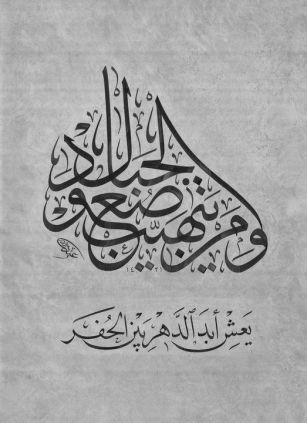 وَمَنْ يَتَهَيَّبْ صُعُودَ الْجِبَالِ
١٤٢١
يَعِشْ أَبَدَ الدَّهْرِ بَيْنَ الْحُفَرِ